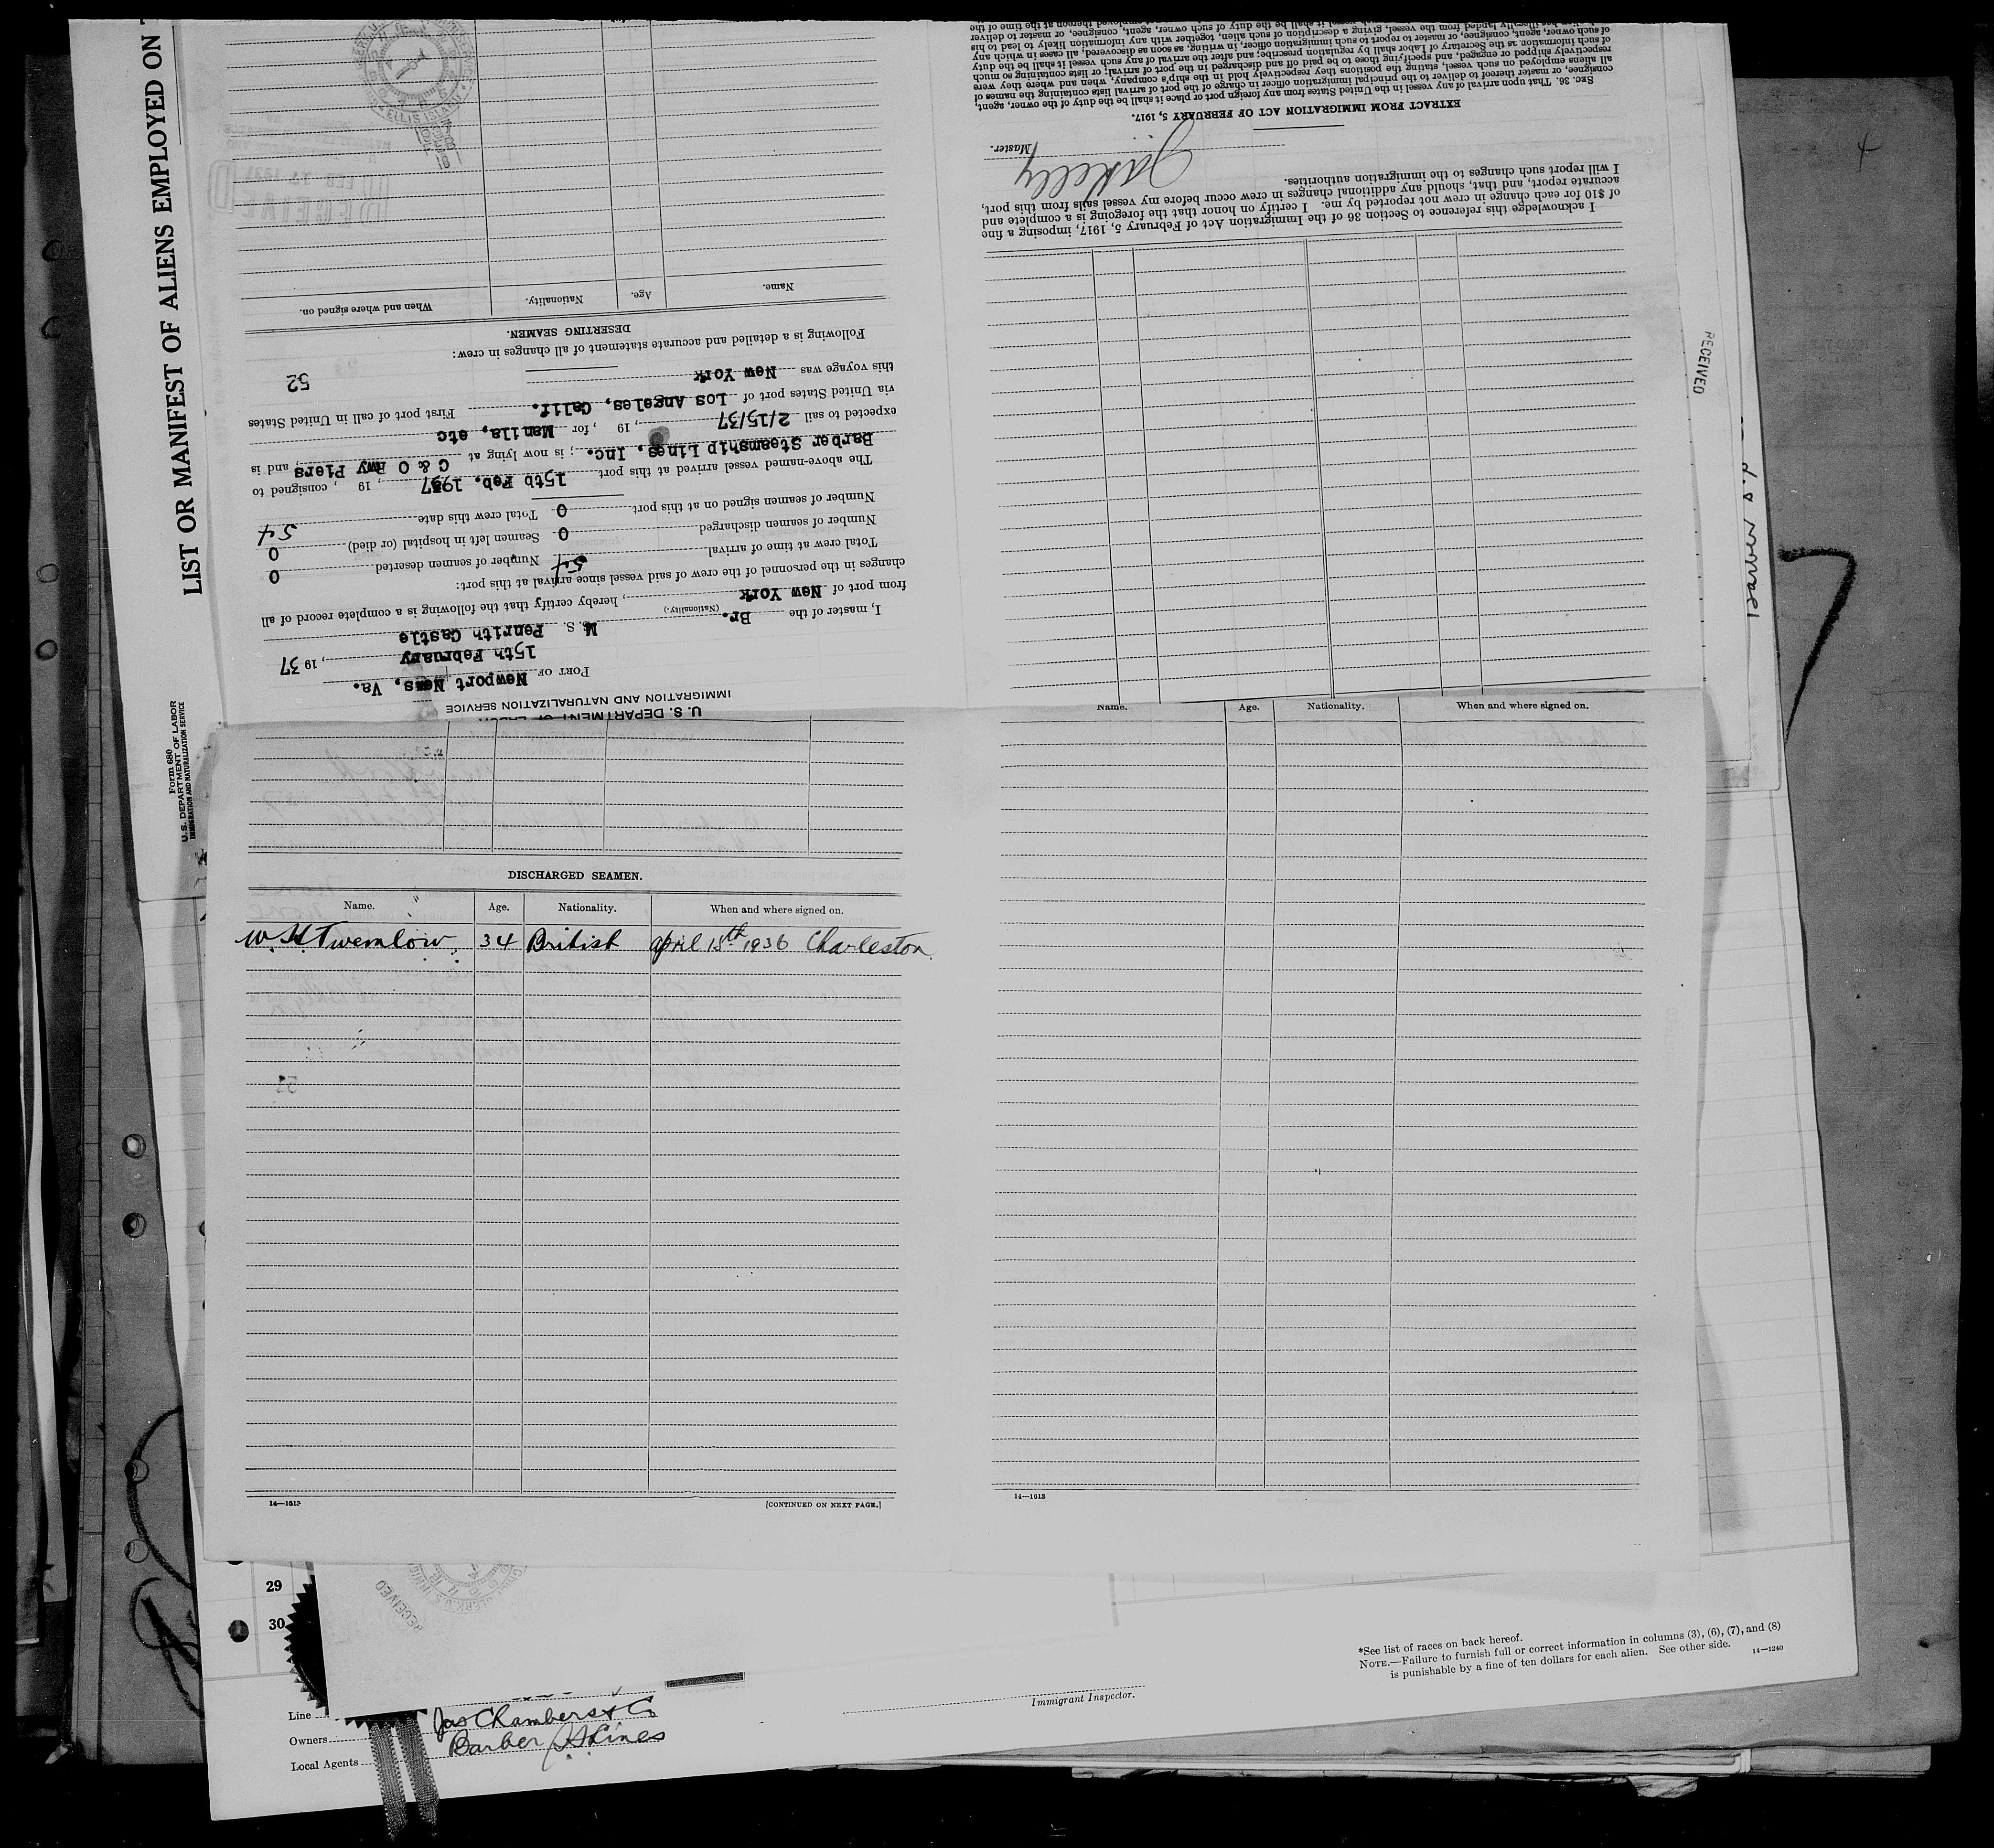 LIST OR MANIFEST OF ALIENS EMPLOYED ON
Form 680
U. S. DEPARTMENT OF LABOR
IMMIGRATION AND NATURALIZATION SERVICE
U. S. DEPARTMENT OF LABOR
IMMIGRATION AND NATURALIZATION SERVICE
PORT OF Newport News, Va.
15th February, 1937
M. S. Penrith Castle
I, master of the Br.
(Nationality.)
from port of New York, hereby certify that the following is a complete record of all
changes in the personnel of the crew of said vessel since arrival at this port:
Total crew at time of arrival 54 Number of seamen deserted 0
Number of seamen discharged 0 Seamen left in hospital (or died) 0
Number of seamen signed on at this port 0 Total crew this date 54
The above-named vessel arrived at this port 15th Feb. 1937, 19 , consigned to
Barber Steamship Lines, Inc.; is now lying at C & O Rwy Piers, and is
expected to sail 2/15/37, 19 , for Manila, etc
via United States port of Los Angeles, Calif. First port of call in United States
this voyage was New York
52
Following is a detailed and accurate statement of all changes in crew:
DESERTING SEAMEN.
Name. Age. Nationality. When and where signed on.
RECEIVED
FEB 17 1937
ELLIS ISLAND
I acknowledge this reference to Section 36 of the Immigration Act of February 5, 1917, imposing a fine
of $10 for each change in crew not reported by me. I certify on honor that the foregoing is a complete and
accurate report, and that, should any additional changes in crew occur before my vessel sails from this port,
I will report such changes to the immigration authorities.
Master.
EXTRACT FROM IMMIGRATION ACT OF FEBRUARY 5, 1917.
SEC. 36. That upon arrival of any vessel in the United States from any foreign port or place it shall be the duty of the owner, agent,
consignee, or master thereof to deliver to the principal immigration officer in charge of the port of arrival lists containing the names of
all aliens employed on such vessel, stating the positions they respectively hold in the ship's company, when and where they were
respectively shipped or engaged, and specifying those to be paid off and discharged in the port of arrival; or lists containing so much
of such information as the Secretary of Labor shall by regulation prescribe; and after the arrival of any such vessel it shall be the duty
of such owner, agent, consignee, or master to report to such immigration officer, in writing, as soon as discovered, all cases in which any
illegally landed from the vessel, giving a description of such alien, together with any information likely to lead to his
RECEIVED
Name. Age. Nationality. When and where signed on.
DISCHARGED SEAMEN.
Name. Age. Nationality. When and where signed on.
W. H. Twemlow. 34 British April 15th 1936 Charleston
14—1613 [CONTINUED ON NEXT PAGE.]
14—1613
RECEIVED
29
30
*See list of races on back hereof.
NOTE.—Failure to furnish full or correct information in columns (3), (6), (7), and (8)
is punishable by a fine of ten dollars for each alien. See other side. 14—1240
Immigrant Inspector.
Line
Owners Jas Chambers & Co
Local Agents Barber SS Lines